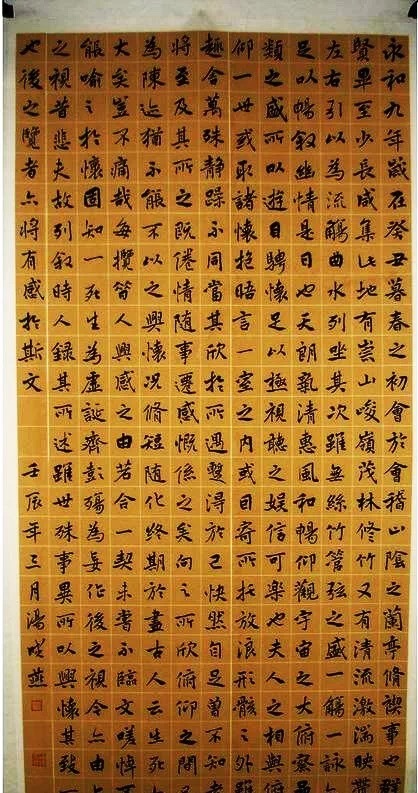 永和九年歲在癸丑暮春之初會於會稽山陰之蘭亭脩禊事也群
賢畢至少長咸集此地有崇山峻嶺茂林修竹又有清流激湍映帶
左右引以為流觴曲水列坐其次雖無絲竹管弦之盛一觴一詠亦
足以暢叙幽情是日也天朗氣清惠風和暢仰觀宇宙之大俯察品
類之盛所以遊目騁懷足以極視聽之娛信可樂也夫人之相與俯
仰一世或取諸懷抱晤言一室之內或因寄所托放浪形骸之外雖
趣舍萬殊靜躁不同當其欣於所遇暫得於己快然自足曾不知老
將至及其所之既倦情隨事遷感慨係之矣向之所欣俯仰之間已
為陳迹猶不能不以之興懷況脩短隨化終期於盡古人云生死亦
大矣豈不痛哉每攬昔人興感之由若合一契未嘗不臨文嗟悼不
能喻之於懷固知一死生為虛誕齊彭殤為妄作後之視今亦由今
之視昔悲夫故列叙時人錄其所述雖世殊事異所以興懷其致一
也後之覽者亦將有感於斯文 壬辰年三月湯成燕